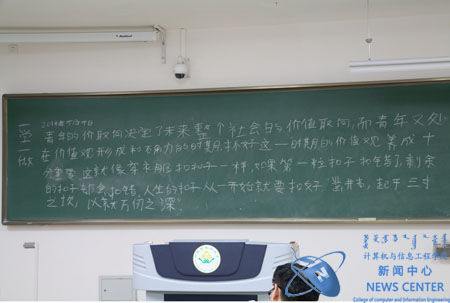 青年的价取向决定了未来整个社会的价值取向,而青年又处
在价值观形成和确立的时期,抓好这一时期的价值观养成十
分重要。这就像穿衣服扣扣子一样,如果第一粒扣子扣错了,剩余
的扣子都会扣错。人生的扣子从一开始就要扣好。凿井者,起于三寸
之坎,以就万仞之深。
计算机与信息工程学院
新闻中心
NEWS CENTER
College of computer and Information Engineering